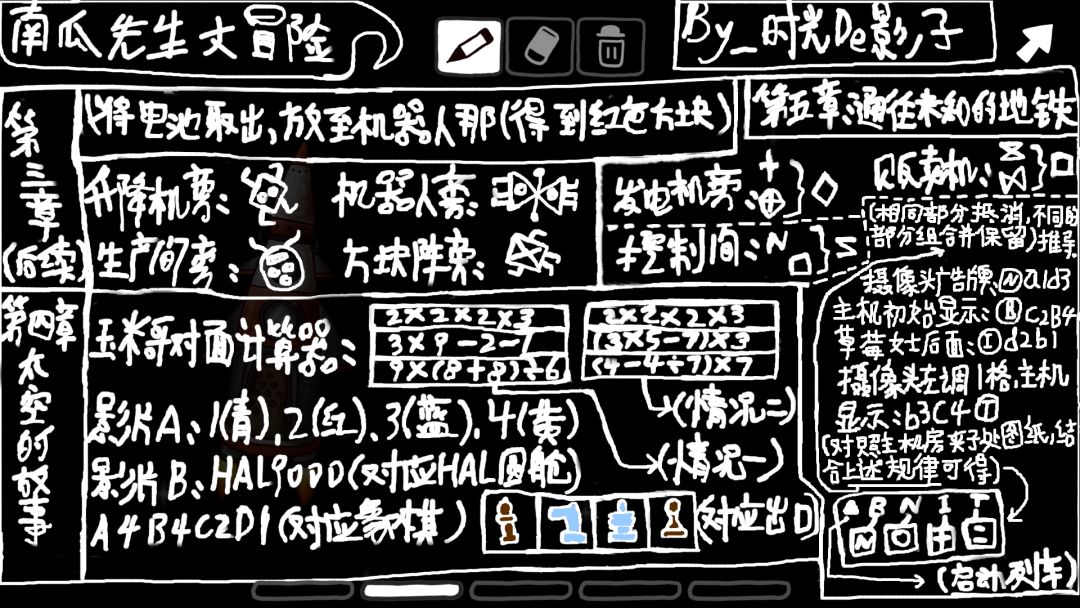 南瓜先生大冒险
By_时光De影子
第三章(后续)
(将电池取出,放至机器人那(得到红色方块)
升降机旁:
机器人旁:
生产间旁:
方块阵旁:
发电机旁:
控制间:N
第五章:通往未知的地铁
贩卖机:
(相同部分抵消,不同的
部分组合并保留)推导
摄像头广告牌:Ⓝa1d3
主机初始显示:ⒷC2B4
草莓女士后面:Ⓘd2b1
摄像头左调1格,主机
显示:b3C4Ⓣ
(对照主机房夹子处图纸,结
合上述规律可得)
A B N I T
(启动列车)
第四章太空的故事
玉米哥对面计算器:
2×2×2×3
3×9-2-1
9×(8+8)÷6
2×2×2×3
(3×5-7)×3
(4-4÷7)×7
(情况二)
(情况一)
影片A:1(青),2(红),3(蓝),4(黄)
影片B:HAL9000(对应HAL图舱)
A4B4C2D1(对应象棋)
(对应出口)